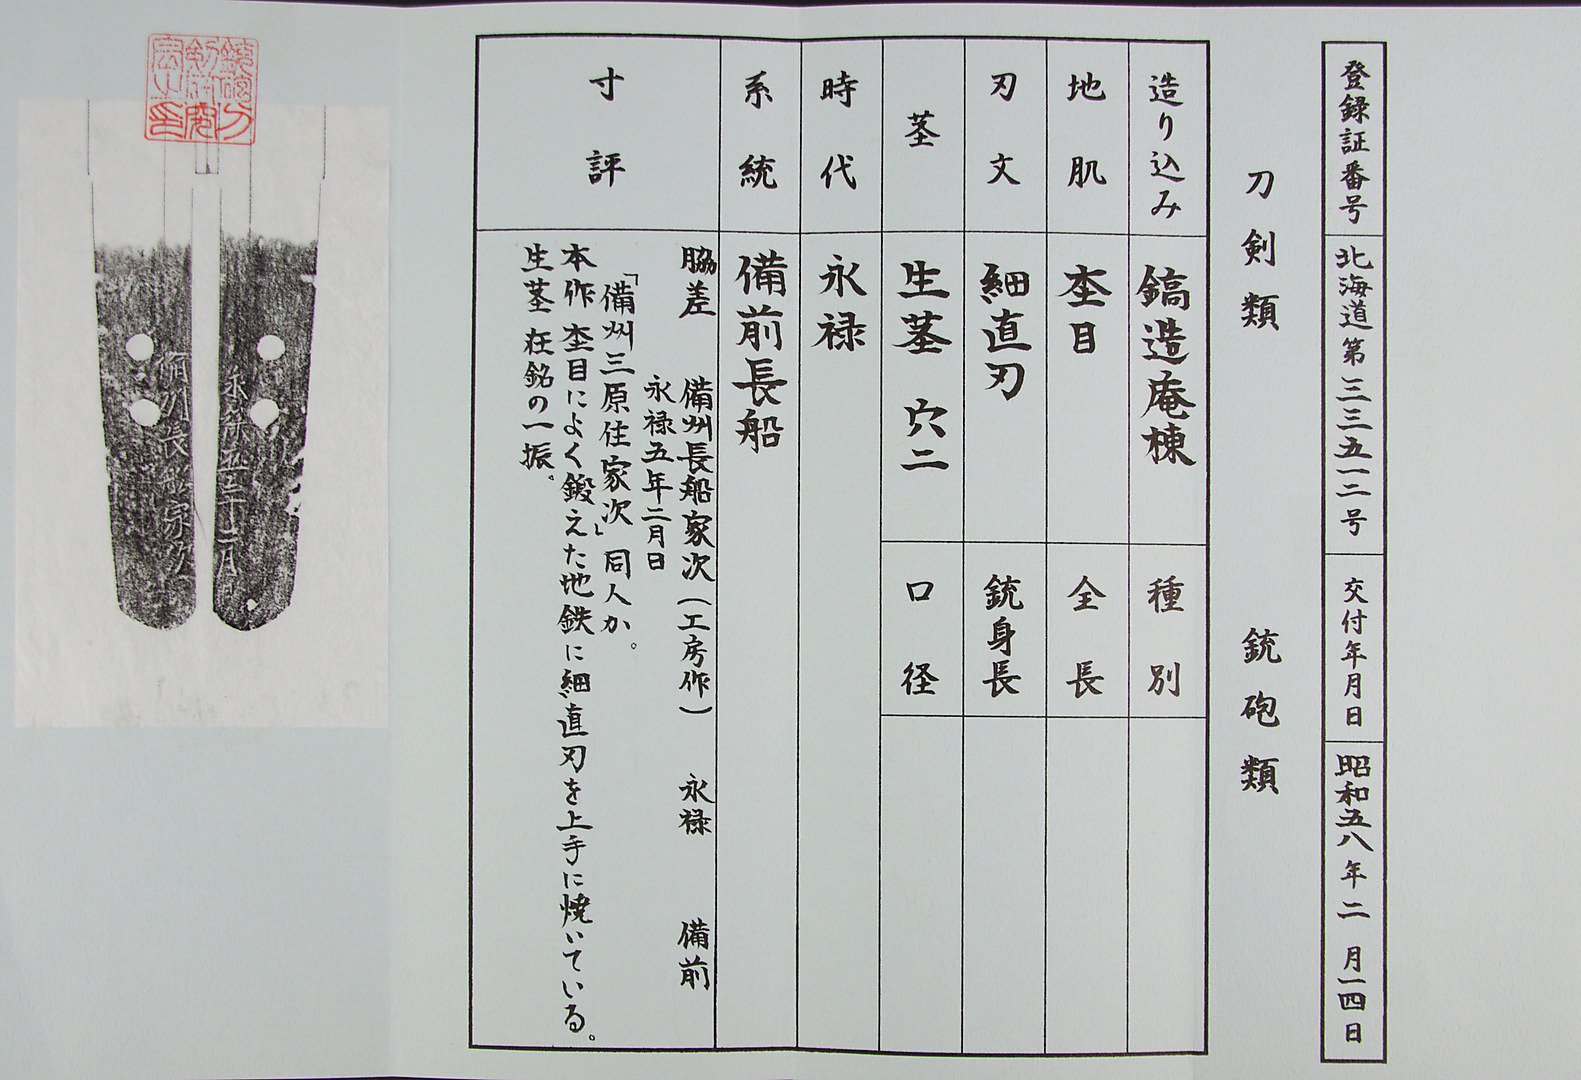 登録証番号 北海道第三三五一二号 交付年月日 昭和五八年二月一四日
刀剣類 銃砲類
造り込み 鎬造庵棟 種別
地肌 杢目 全長
刃文 細直刃 銃身長
茎 生茎 穴二 口径
時代 永禄
系統 備前長船
寸評
脇差 備州長船家次(工房作) 永禄 備前
永禄五年二月日
「備州三原住家次」同人か。
本作杢目によく鍛えた地鉄に細直刃を上手に焼いている。
生茎在銘の一振。
永禄五年二月
備州長船家次